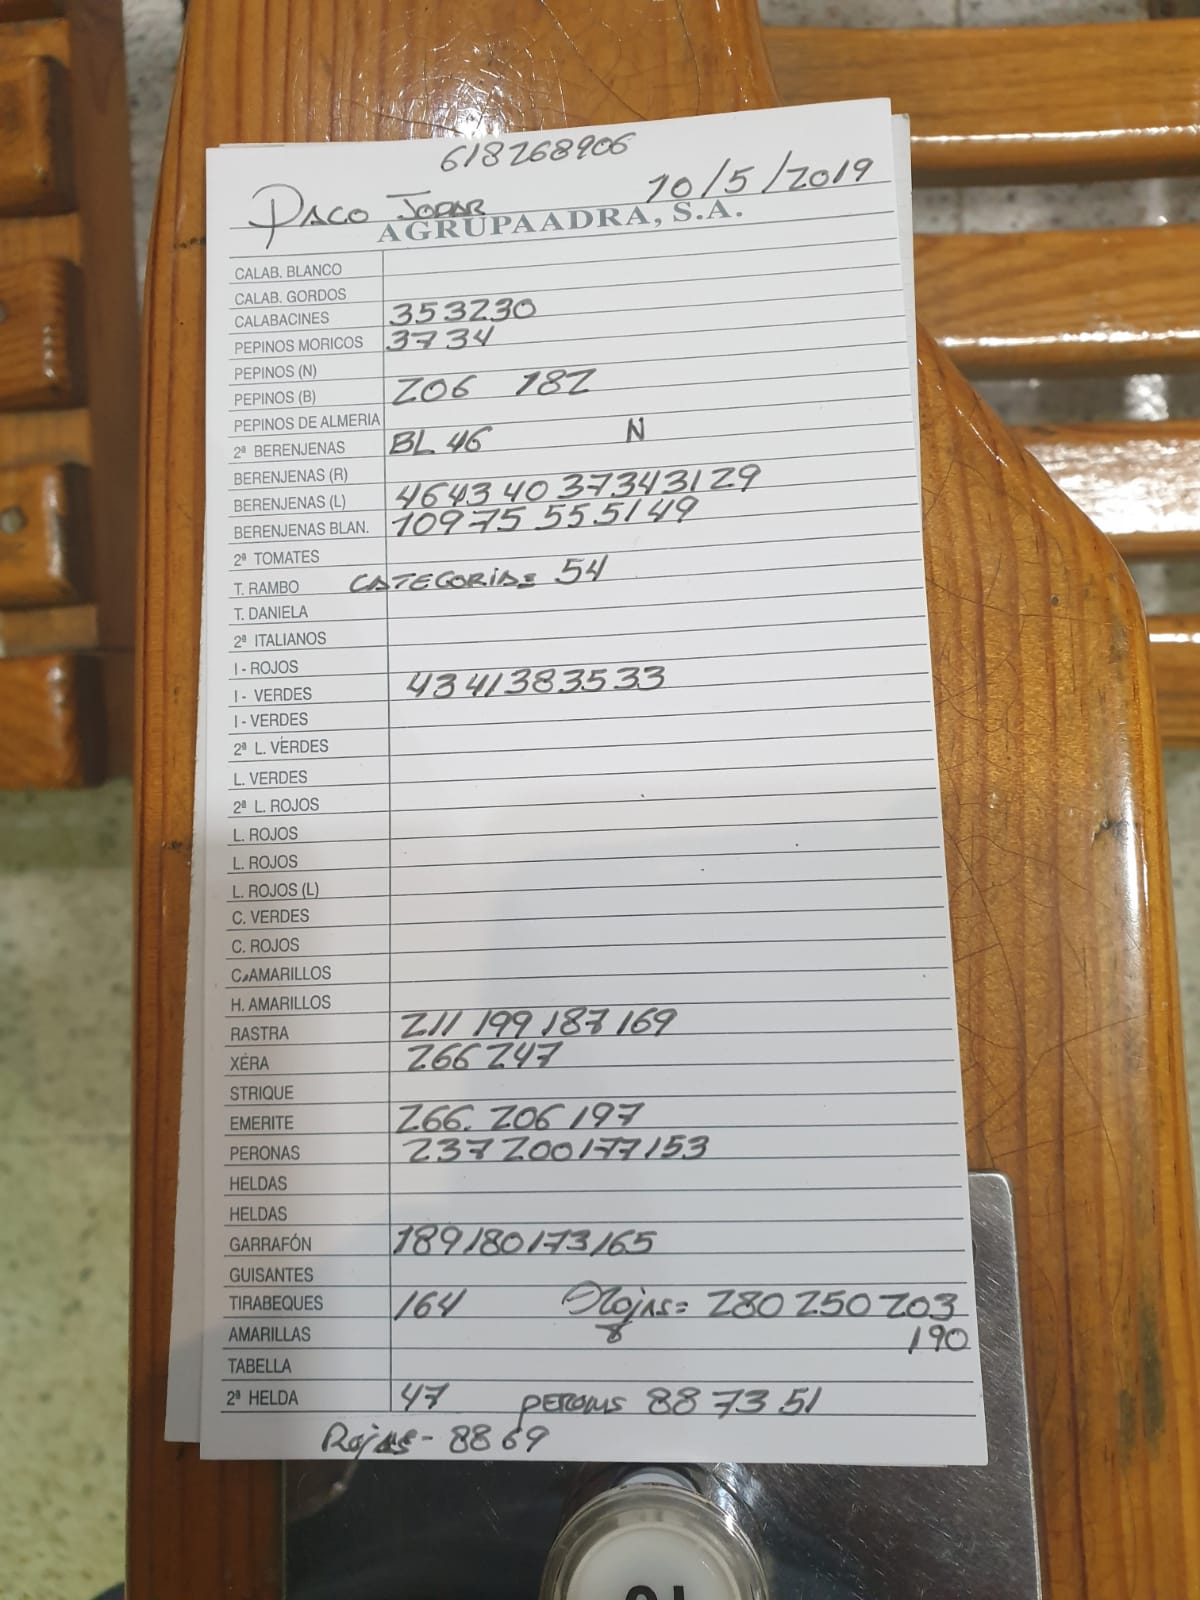 618268906
PACO JODAR 10/5/2019
AGRUPAADRA, S.A.
CALAB. BLANCO
CALAB. GORDOS
CALABACINES 353230
PEPINOS MORICOS 3734
PEPINOS (N)
PEPINOS (B) 206 182
PEPINOS DE ALMERIA
2ª BERENJENAS BL 46 N
BERENJENAS (R)
BERENJENAS (L) 4643 40 37343129
BERENJENAS BLAN. 10975 55 5149
2ª TOMATES
T. RAMBO CATEGORIAS 54
T. DANIELA
2ª ITALIANOS
I - ROJOS
I - VERDES 4341383533
I - VERDES
2ª L. VERDES
L. VERDES
2ª L. ROJOS
L. ROJOS
L. ROJOS
L. ROJOS (L)
C. VERDES
C. ROJOS
C. AMARILLOS
H. AMARILLOS
RASTRA 211 199 187 169
XÉRA 266 247
STRIQUE
EMERITE 266. 206 197
PERONAS 237 200 177 153
HELDAS
HELDAS
GARRAFÓN 189 180 173 165
GUISANTES
TIRABEQUES 164 Rojas= 280 250 203
AMARILLAS 190
TABELLA
2ª HELDA 47 PERONAS 88 73 51
Rojas - 88 69